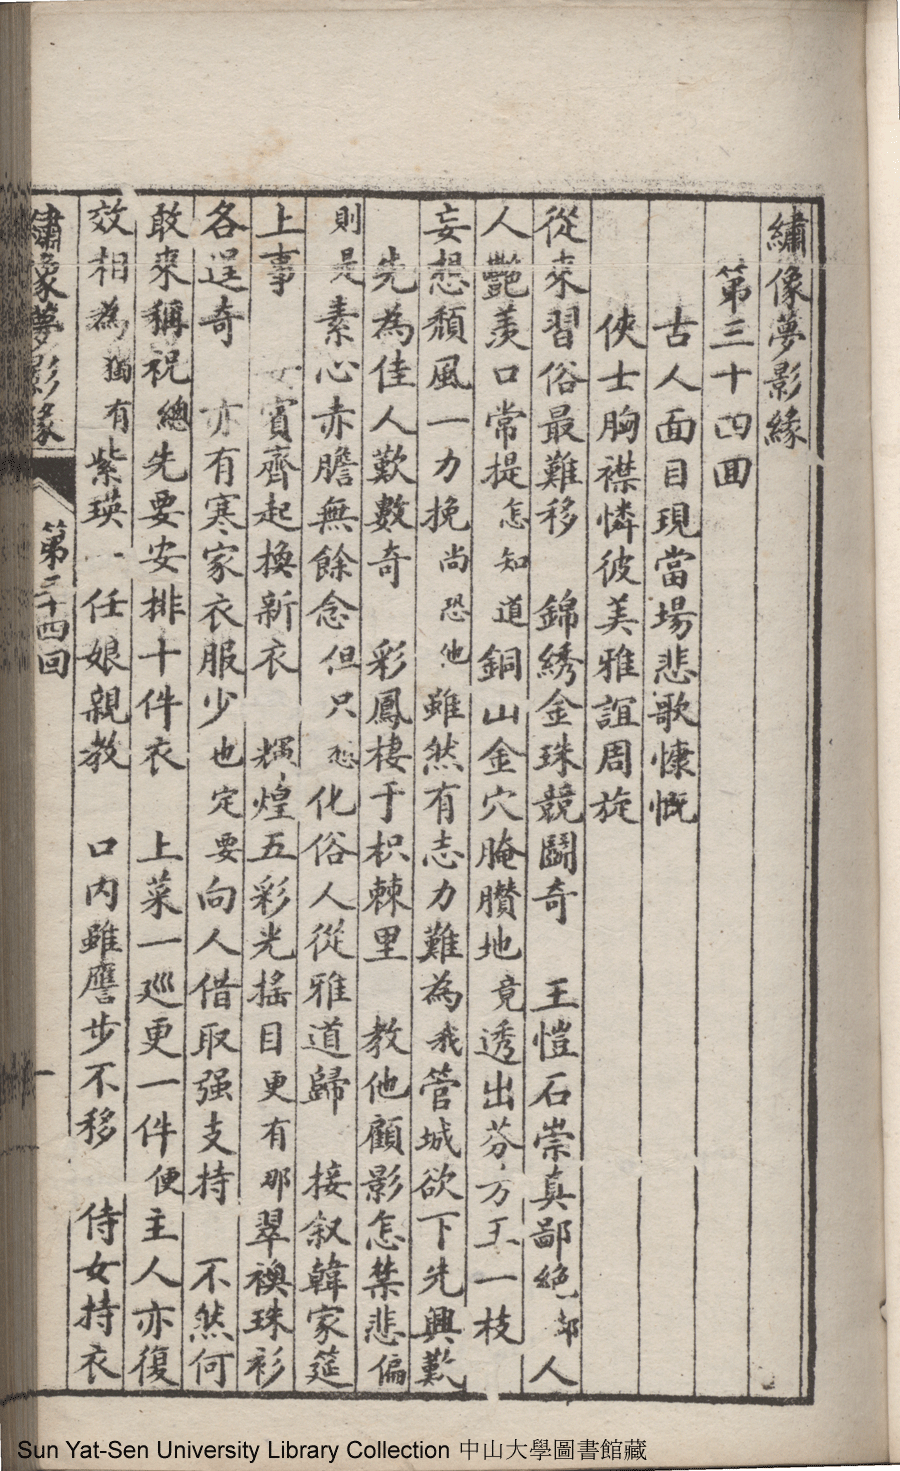 繡像夢影緣
第三十四囬
古人面目現當場悲歌慷慨
俠士胸襟憐彼美雅誼周旋
從來習俗最難移　錦綉金珠競鬪奇　王愷石崇真鄙絕却人
人艷羨口常提怎知道銅山金穴腌臢地竟透出芬方玉一枝
妄想頽風一力挽尚恐他雖然有志力難為我管城欲下先興歎
先為佳人歎數奇　彩鳳棲于枳棘里　教他顧影怎禁悲偏
則是素心赤膽無餘念但只恐化俗人從雅道歸　接叙韓家筵
上事　女賓齊起換新衣　輝煌五彩光搖目更有那翠襖珠衫
各逞奇　亦有寒家衣服少也定要向人借取强支持　不然何
敢來稱祝總先要安排十件衣　上菜一廵更一件便主人亦復
效相為獨有紫瑛一任娘親教　口內雖譍步不移　侍女持衣
繡像夢影緣
第三十四回
一
Sun Yat-Sen University Library Collection 中山大學圖書館藏